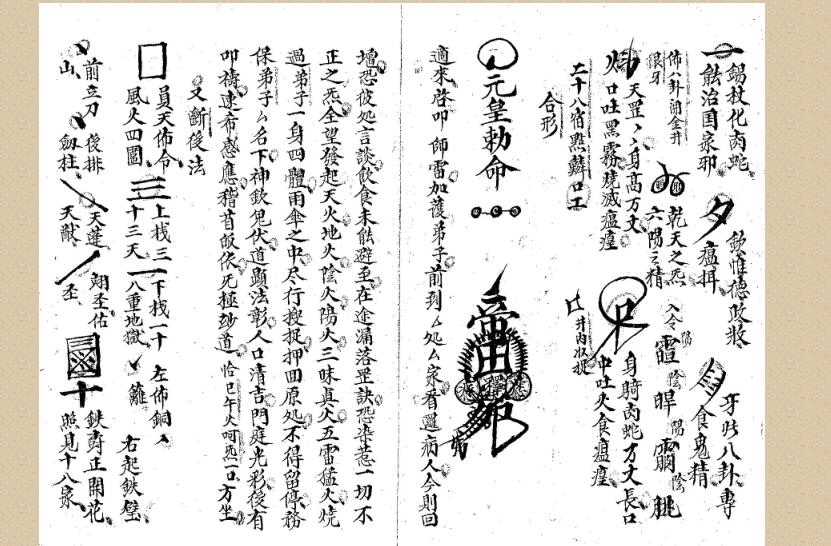 錫杖化肉蛇
能治国家邪
欽惟德政將
瘟揖
牙爿八卦專
食鬼精
佈八卦開金井
銀牙
乾天之炁
六陽之精
入令
陽
霐
陰
晘
陽
霛
陰
朓
天罡罡身高万丈
口吐黑霧燒滅瘟瘽
身騎肉蛇万丈長口
中吐火食瘟瘽
二十八宿點鱗口工
井內收捉
合形
元皇勅命
適來啓叩師雷加護弟子前到厶処厶家看過病人今則回
壇恐彼処言談飲食未能避至在途漏落罡訣恐染惹一切不
正之炁全望發起天火地火陰火陽火三昧真火五雷猛火燒
過弟子一身四體雨傘之中尽行搜捉押回原処不得留停務
保弟子厶名下神欽鬼伏道顯法彰人口清吉門庭光彩侵有
叩禱速希感應稽首皈依无極玅道恰巳午火呵炁一口方坐
又斷後法
員天佈令
風火四圍
上找三
十三天
下找一十
八重地獄
左佈銅
籬
右起鉄壁
前立刀
山
後排
劔柱
天蓬
天猷
翊圣佑
圣
鉄樹正開花
照見十八家